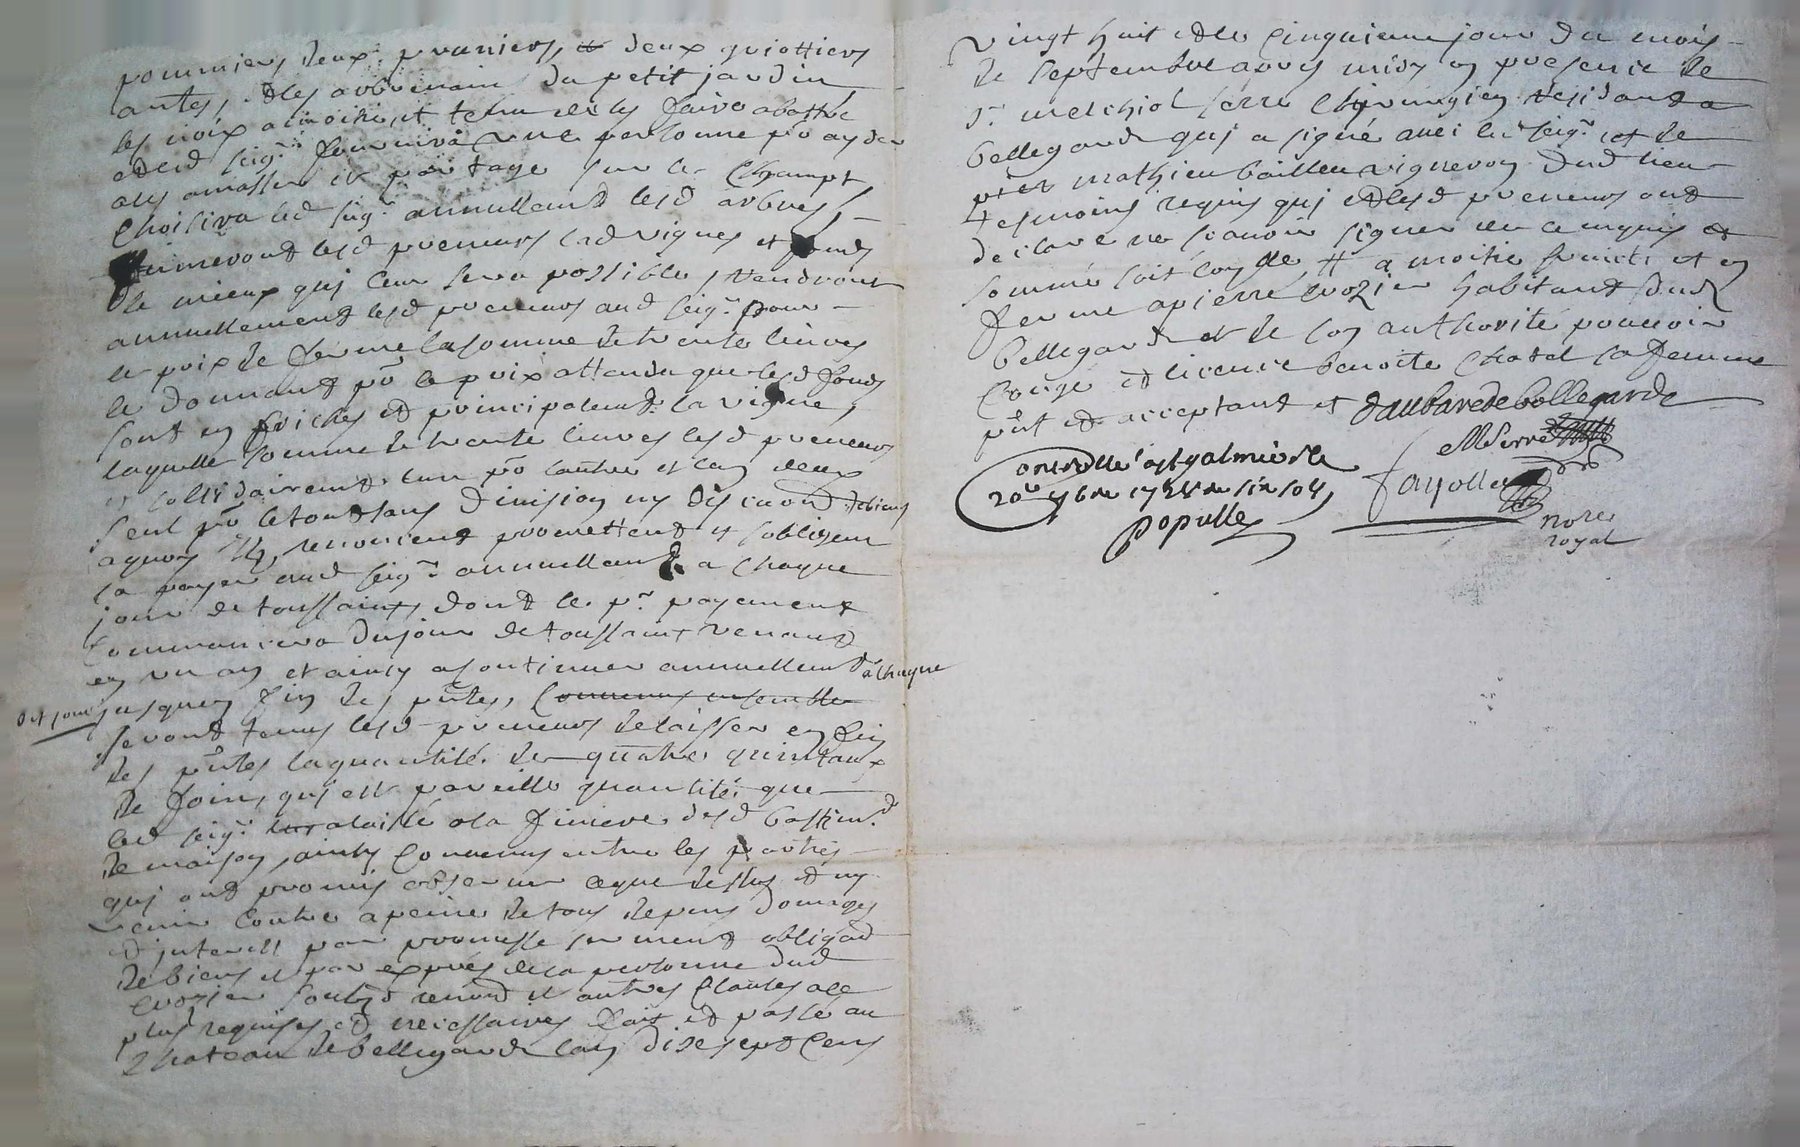 pommiers deux pruniers, deux griottiers
antes, du petit jardin
les noix a moitié et tenu de les faire abattre
et led seigr fournira une personne po ayder
a les amasser et partage sur le champt
choisira led seigr annuellemt lesd arbres
lesd preneurs lad vigne et fonds
le mieux quj leur sera possible, tiendront
annuellement lesd preneurs aud seigr pour
le prix de ferme la somme de trente livres
le donnant po le prix attendu que lesd fonds
sont en friches et principalemt la vigne,
laquelle somme de trente livres lesd preneurs
et solidairemt l'un po l'autre et l'un deux
seul po le tout sans division ny discution de biens
a quoy ils renoncent promettent et sobligent
la payer aud seigr annuellemt a chaque
jour de toussaints dont le pr payement
commancera du jour de toussaint venant
en un an et ainsy a continuer annuellemt a chaque
dit jour jusques fin des pntes, convenus ensemble
seront tenus lesd preneurs de laisser en fin
des pntes la quantité de quatre quintaux
de foin, quj est pareille quantité que
led seigr a laissé a la desd bastimt
de maison, ainsy convenus entre les parties
quj ont promis observer ce que dessus et ny
venir contre a peine de tous depens domages
et interest par promesse serment obligaon
de biens et par exprés de la personne dud
crozier soubz renon et autres clauses a ce
plus requises et necessaires fait et passé au
chateau de bellegarde l'an dix sept cens
vingt huit et le cinquieme jour du mois
de septembre apres midy en presence de
sr melchiol serre chirurgien residant a
bellegarde quj a signé avec led seigr et de
mathieu bailleu vigneron dud lieu
tesmoins requis quj et lesd preneurs ont
declaré ne scavoir signer de ce enquis et
sommé soit coñlle, a moitié fruits et en
ferme a pierre crozier habitant dud
bellegarde et de son authorité pouvoir
congé et licence benoite chatel sa femme
pnt et acceptant et daubarede bellegarde
MSerre
controllé a st galmier le
20e 7bre 1728 six sols
fayolle
populle
nore
royal